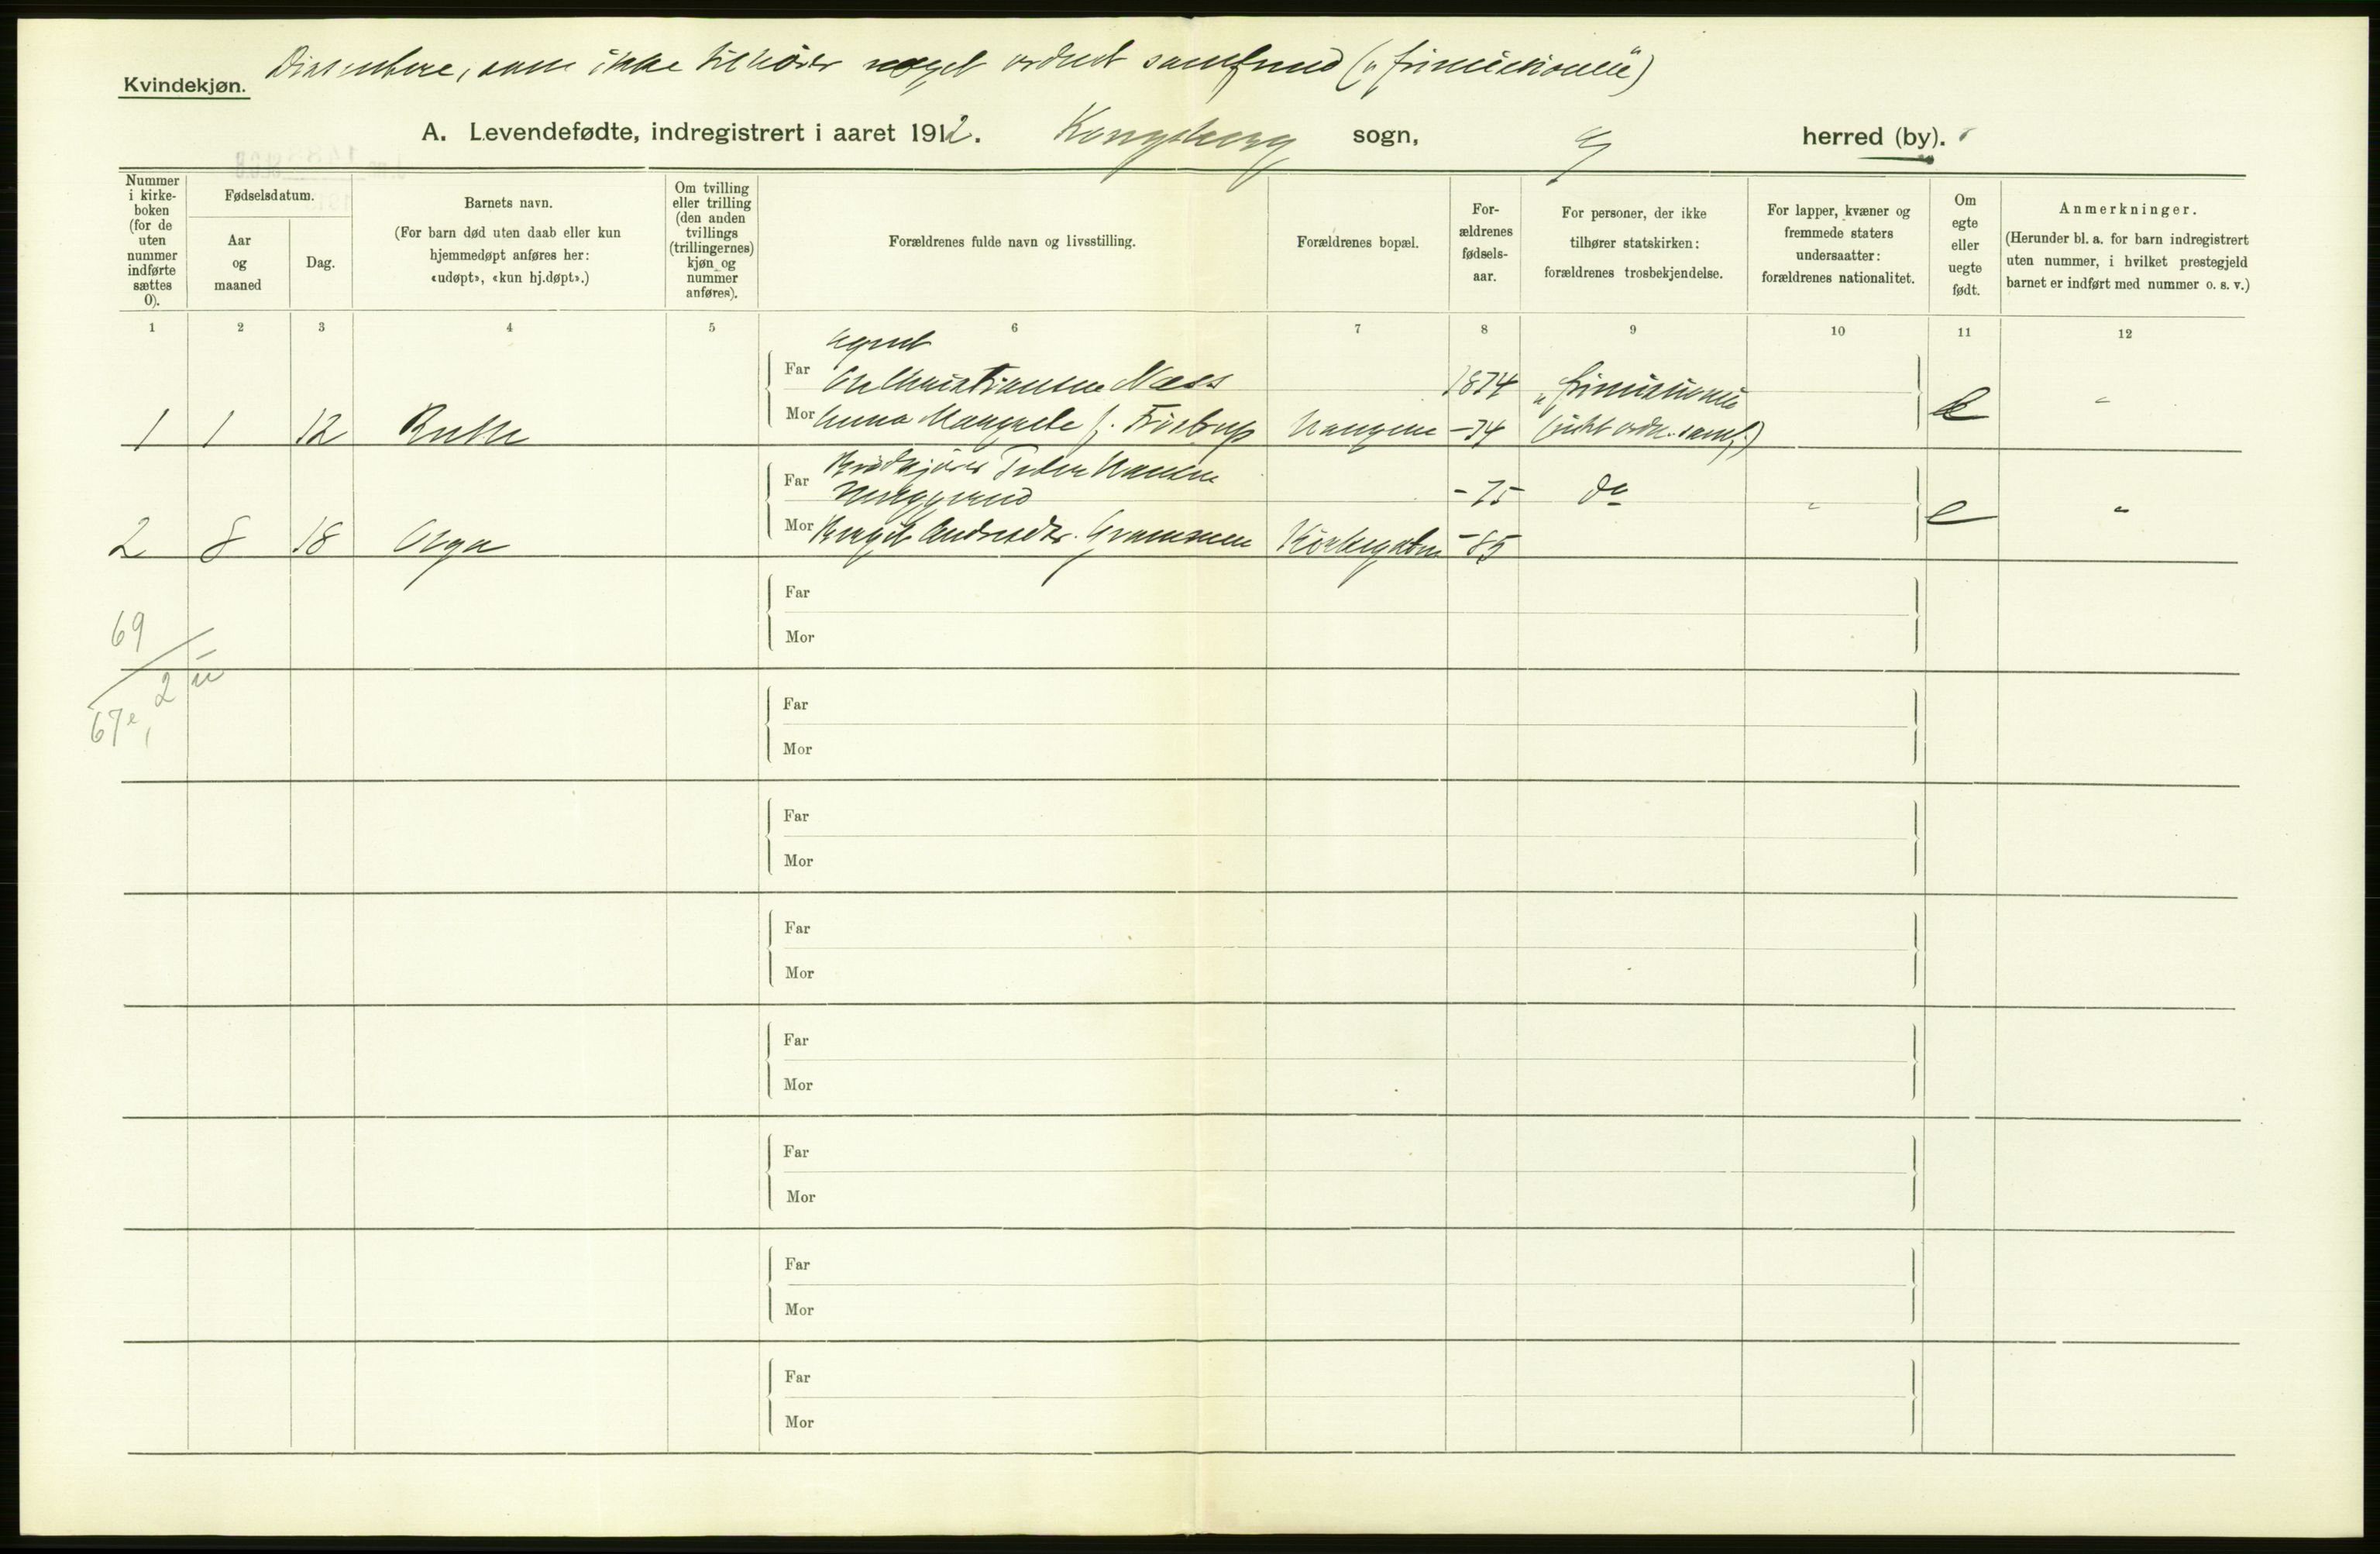 Kvindekjøn. Dissentere, som ikke tilhører noget ordnet samfund („frimissionen“)
A. Levendefødte, indregistrert i aaret 1912. Kongsberg sogn, herred (by).
Nummer i kirkeboken (for de uten nummer indførte sættes 0).
Fødselsdatum.
Aar og maaned
Dag.
Barnets navn.
(For barn død uten daab eller kun hjemmedøpt anføres her: «udøpt», «kun hj.døpt».)
Om tvilling eller trilling (den anden tvillings (trillingernes) kjøn og nummer anføres).
Forældrenes fulde navn og livsstilling.
Forældrenes bopæl.
For-ældrenes fødsels-aar.
For personer, der ikke tilhører statskirken: forældrenes trosbekjendelse.
For lapper, kvæner og fremmede staters undersaatter: forældrenes nationalitet.
Om egte eller uegte født.
Anmerkninger.
(Herunder bl. a. for barn indregistrert uten nummer, i hvilket prestegjeld barnet er indført med nummer o. s. v.)
1 2 3 4 5 6 7 8 9 10 11 12
Agent
Far Ole Kristiansen Næss 1874 „frimissionen
1 1 12 Ruth Mor Anna Margrete f. Tristrup Haugene -74 (ikke ordn. samf.) e "
Far Brødkjører Peder Hansen
-75 do " e "
2 8 18 Olga Mor Birgit Andreasdtr. Kirkegaten -85
Far
Mor
69
2 u
67e,
Far
Mor
Far
Mor
Far
Mor
Far
Mor
Far
Mor
Far
Mor
Far
Mor